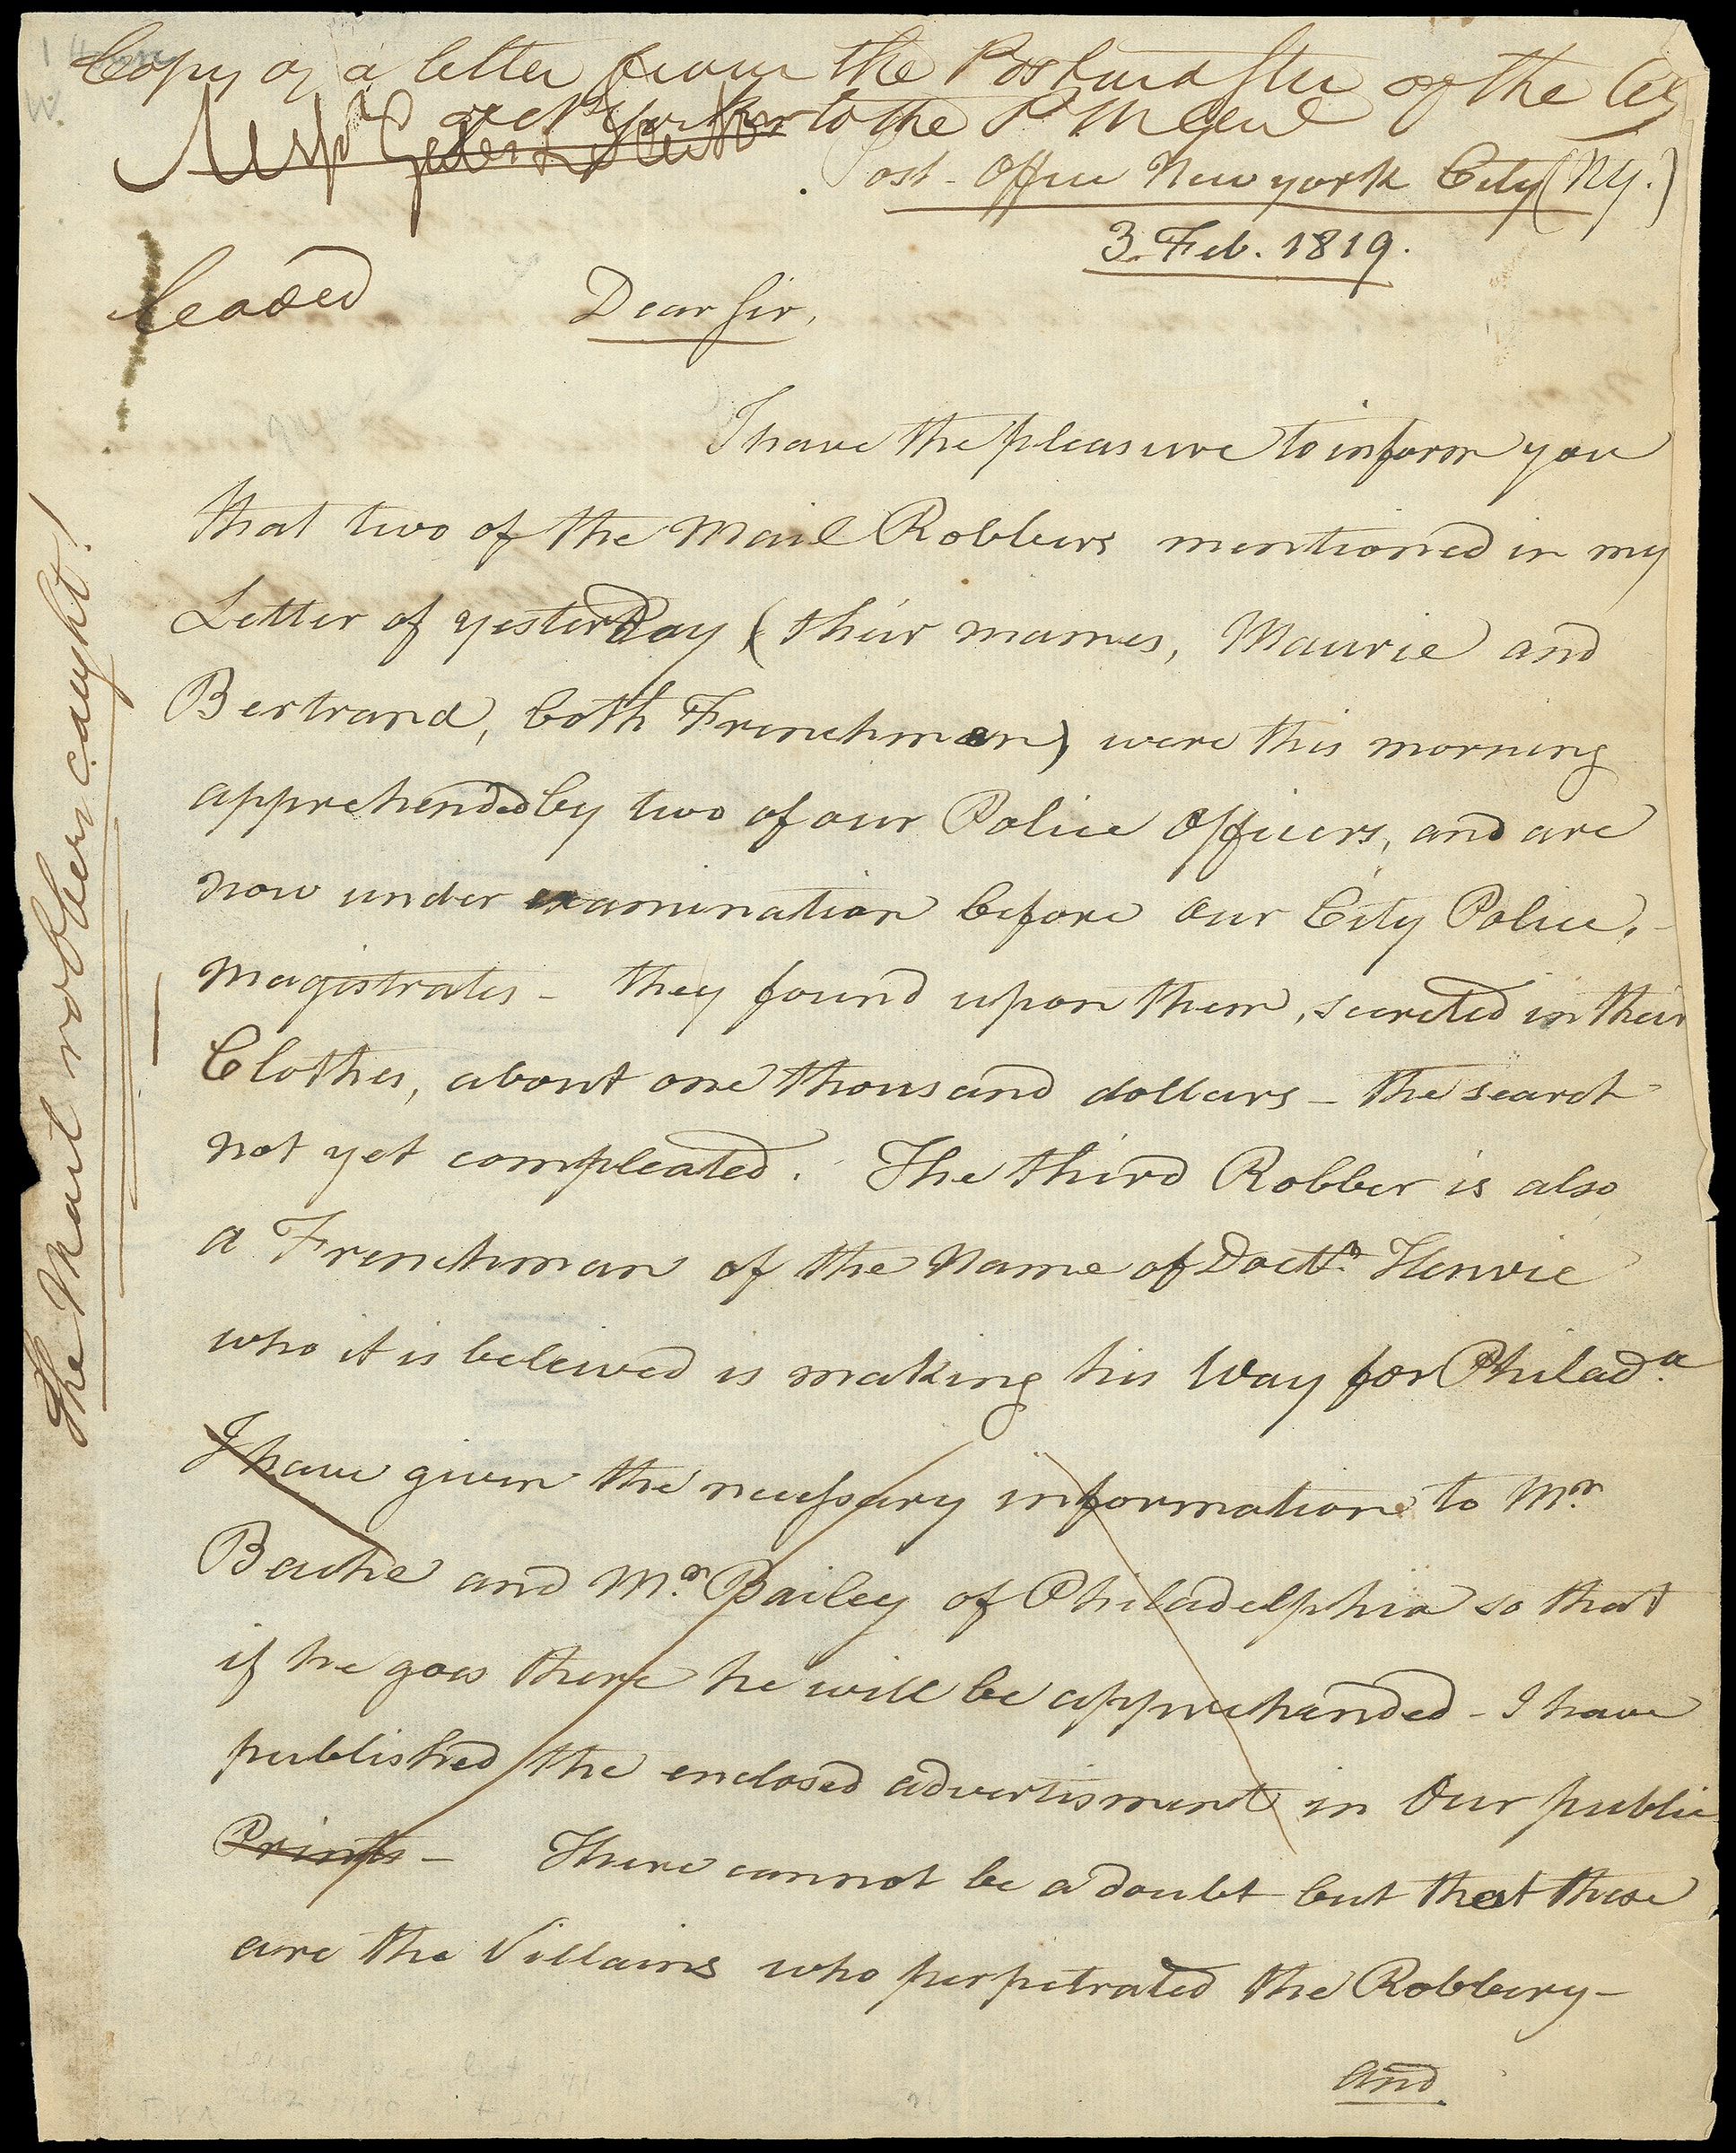 Copy of a letter from the Postmaster of the City
of N York to the P M Genl
Post-Office New york City (Ny.)
3. Feb. 1819.
leaded
Dear Sir,
I have the pleasure to inform you
that two of the Mail Robbers mentioned in my
Letter of yesterday (their names, Maurie and
Bertrand, both Frenchmen) were this morning
apprehended by two of our Police Officers, and are
now under examination before our City Police.
Magistrates - they found upon them, secreted in their
Clothes, about one thousand dollars - the search
not yet compleated. The third Robber is also
a Frenchman of the Name of Doctr. Henrie
who it is beleived is making his Way for Philada.
I have given the necessary information to Mr.
Bache and Mr. Bailey of Philadelphia so that
if he goes there he will be apprehended - I have
published the enclosed advertisment in Our public
Prints - There cannot be a doubt but that these
are the Villains who perpetrated the Robbery -
and
The Mail robbers caught!